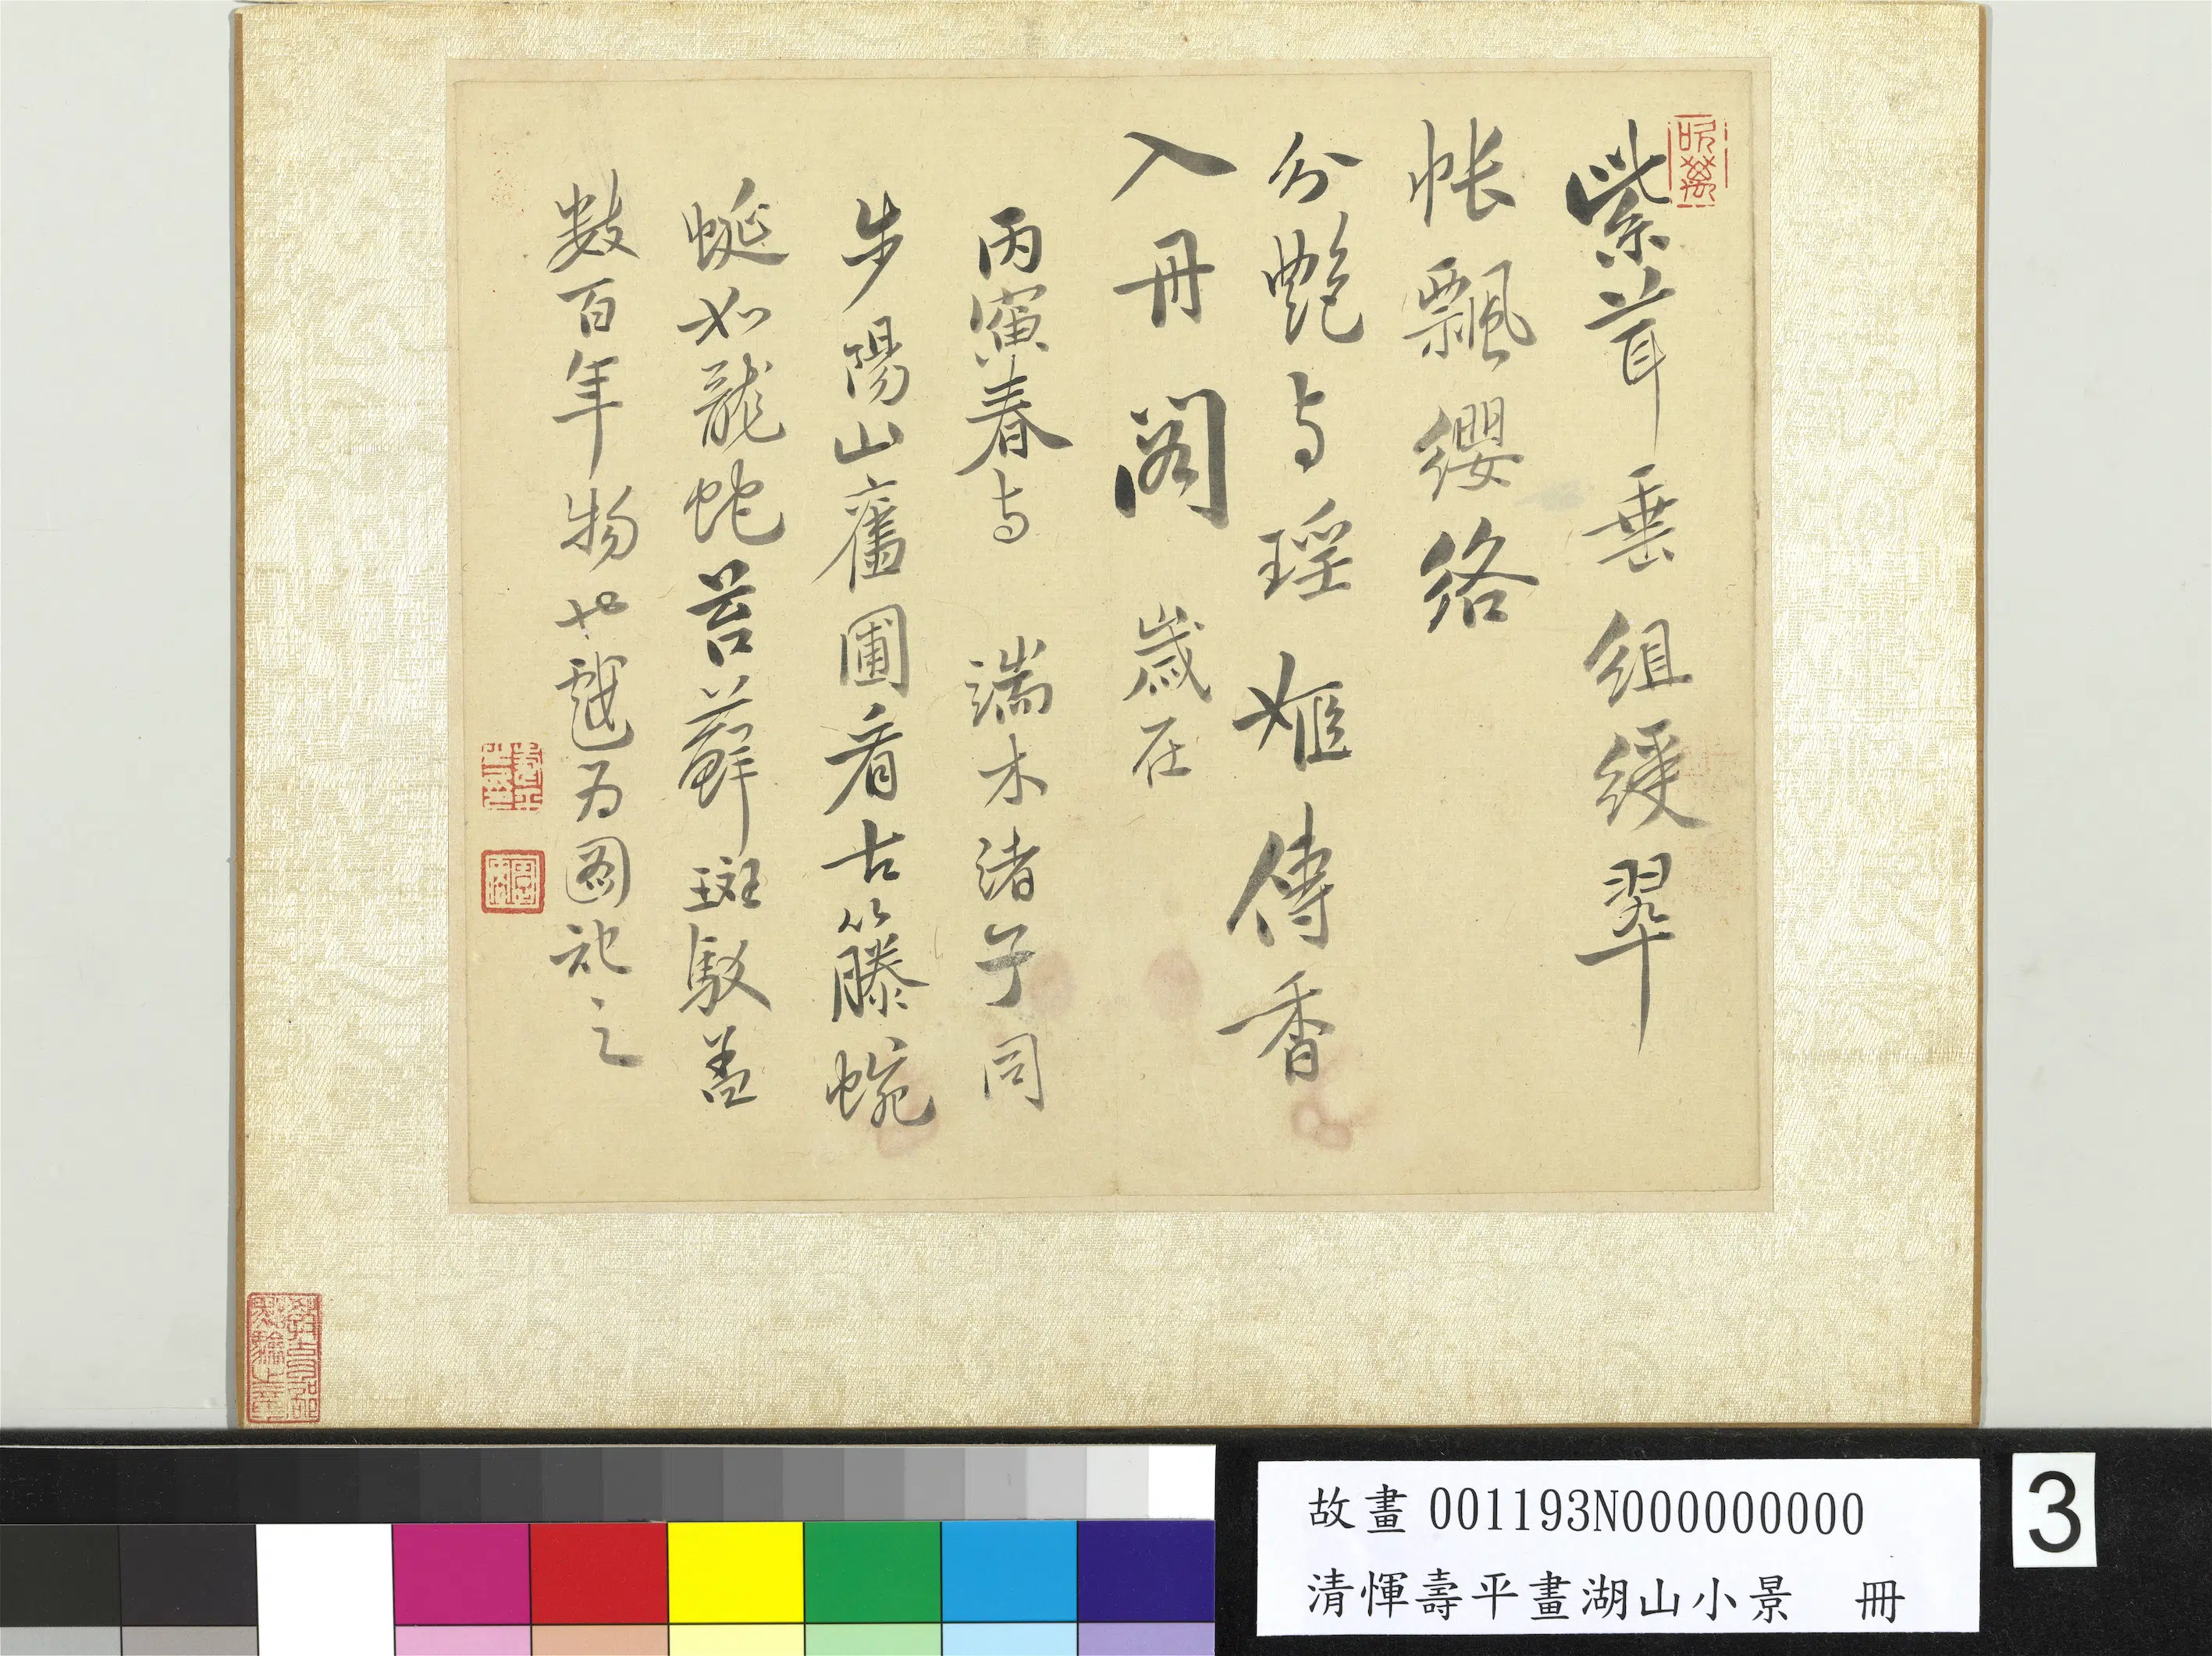 紫茸垂組綬翠
帐飄纓络
分艷与瑶姬傳香
入丹阁 歲在
丙寅春与 端木諸子同
步陽山舊圃看古籐蜿
蜒如龍蛇苔蘚斑駁盖
数百年物也戲为圖記之
故畫 001193N000000000
清惲壽平畫湖山小景 冊
3